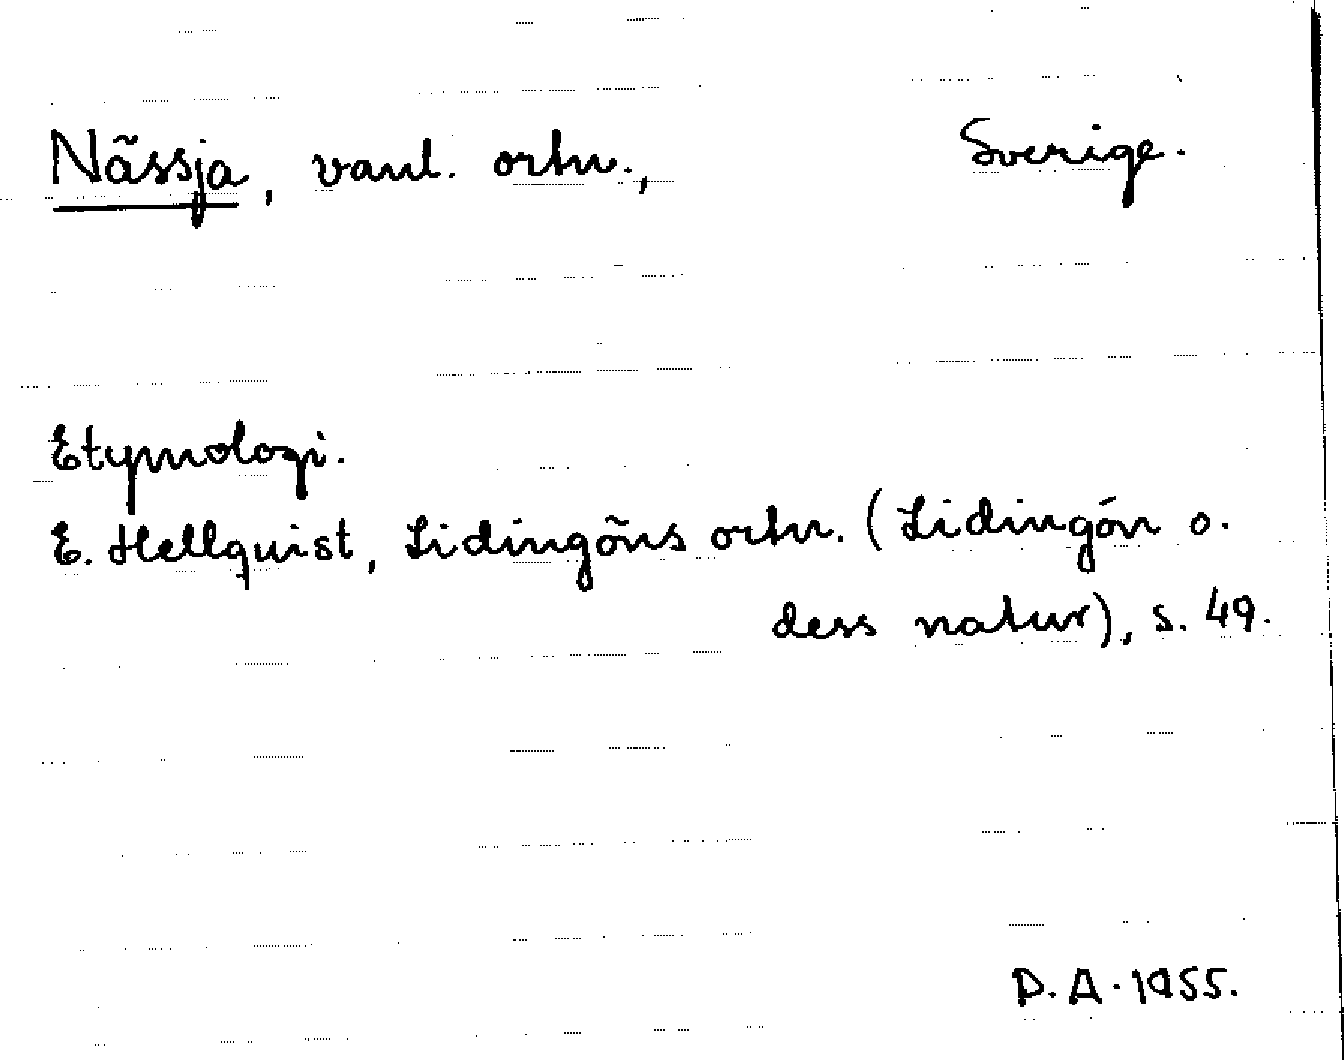 Nässja, vanl. ortn., Sverige.
Etymologi.
E. Hellquist, Lidingöns ortn. (Lidingön o.
dess natur), s. 49.
D.A. 1955.